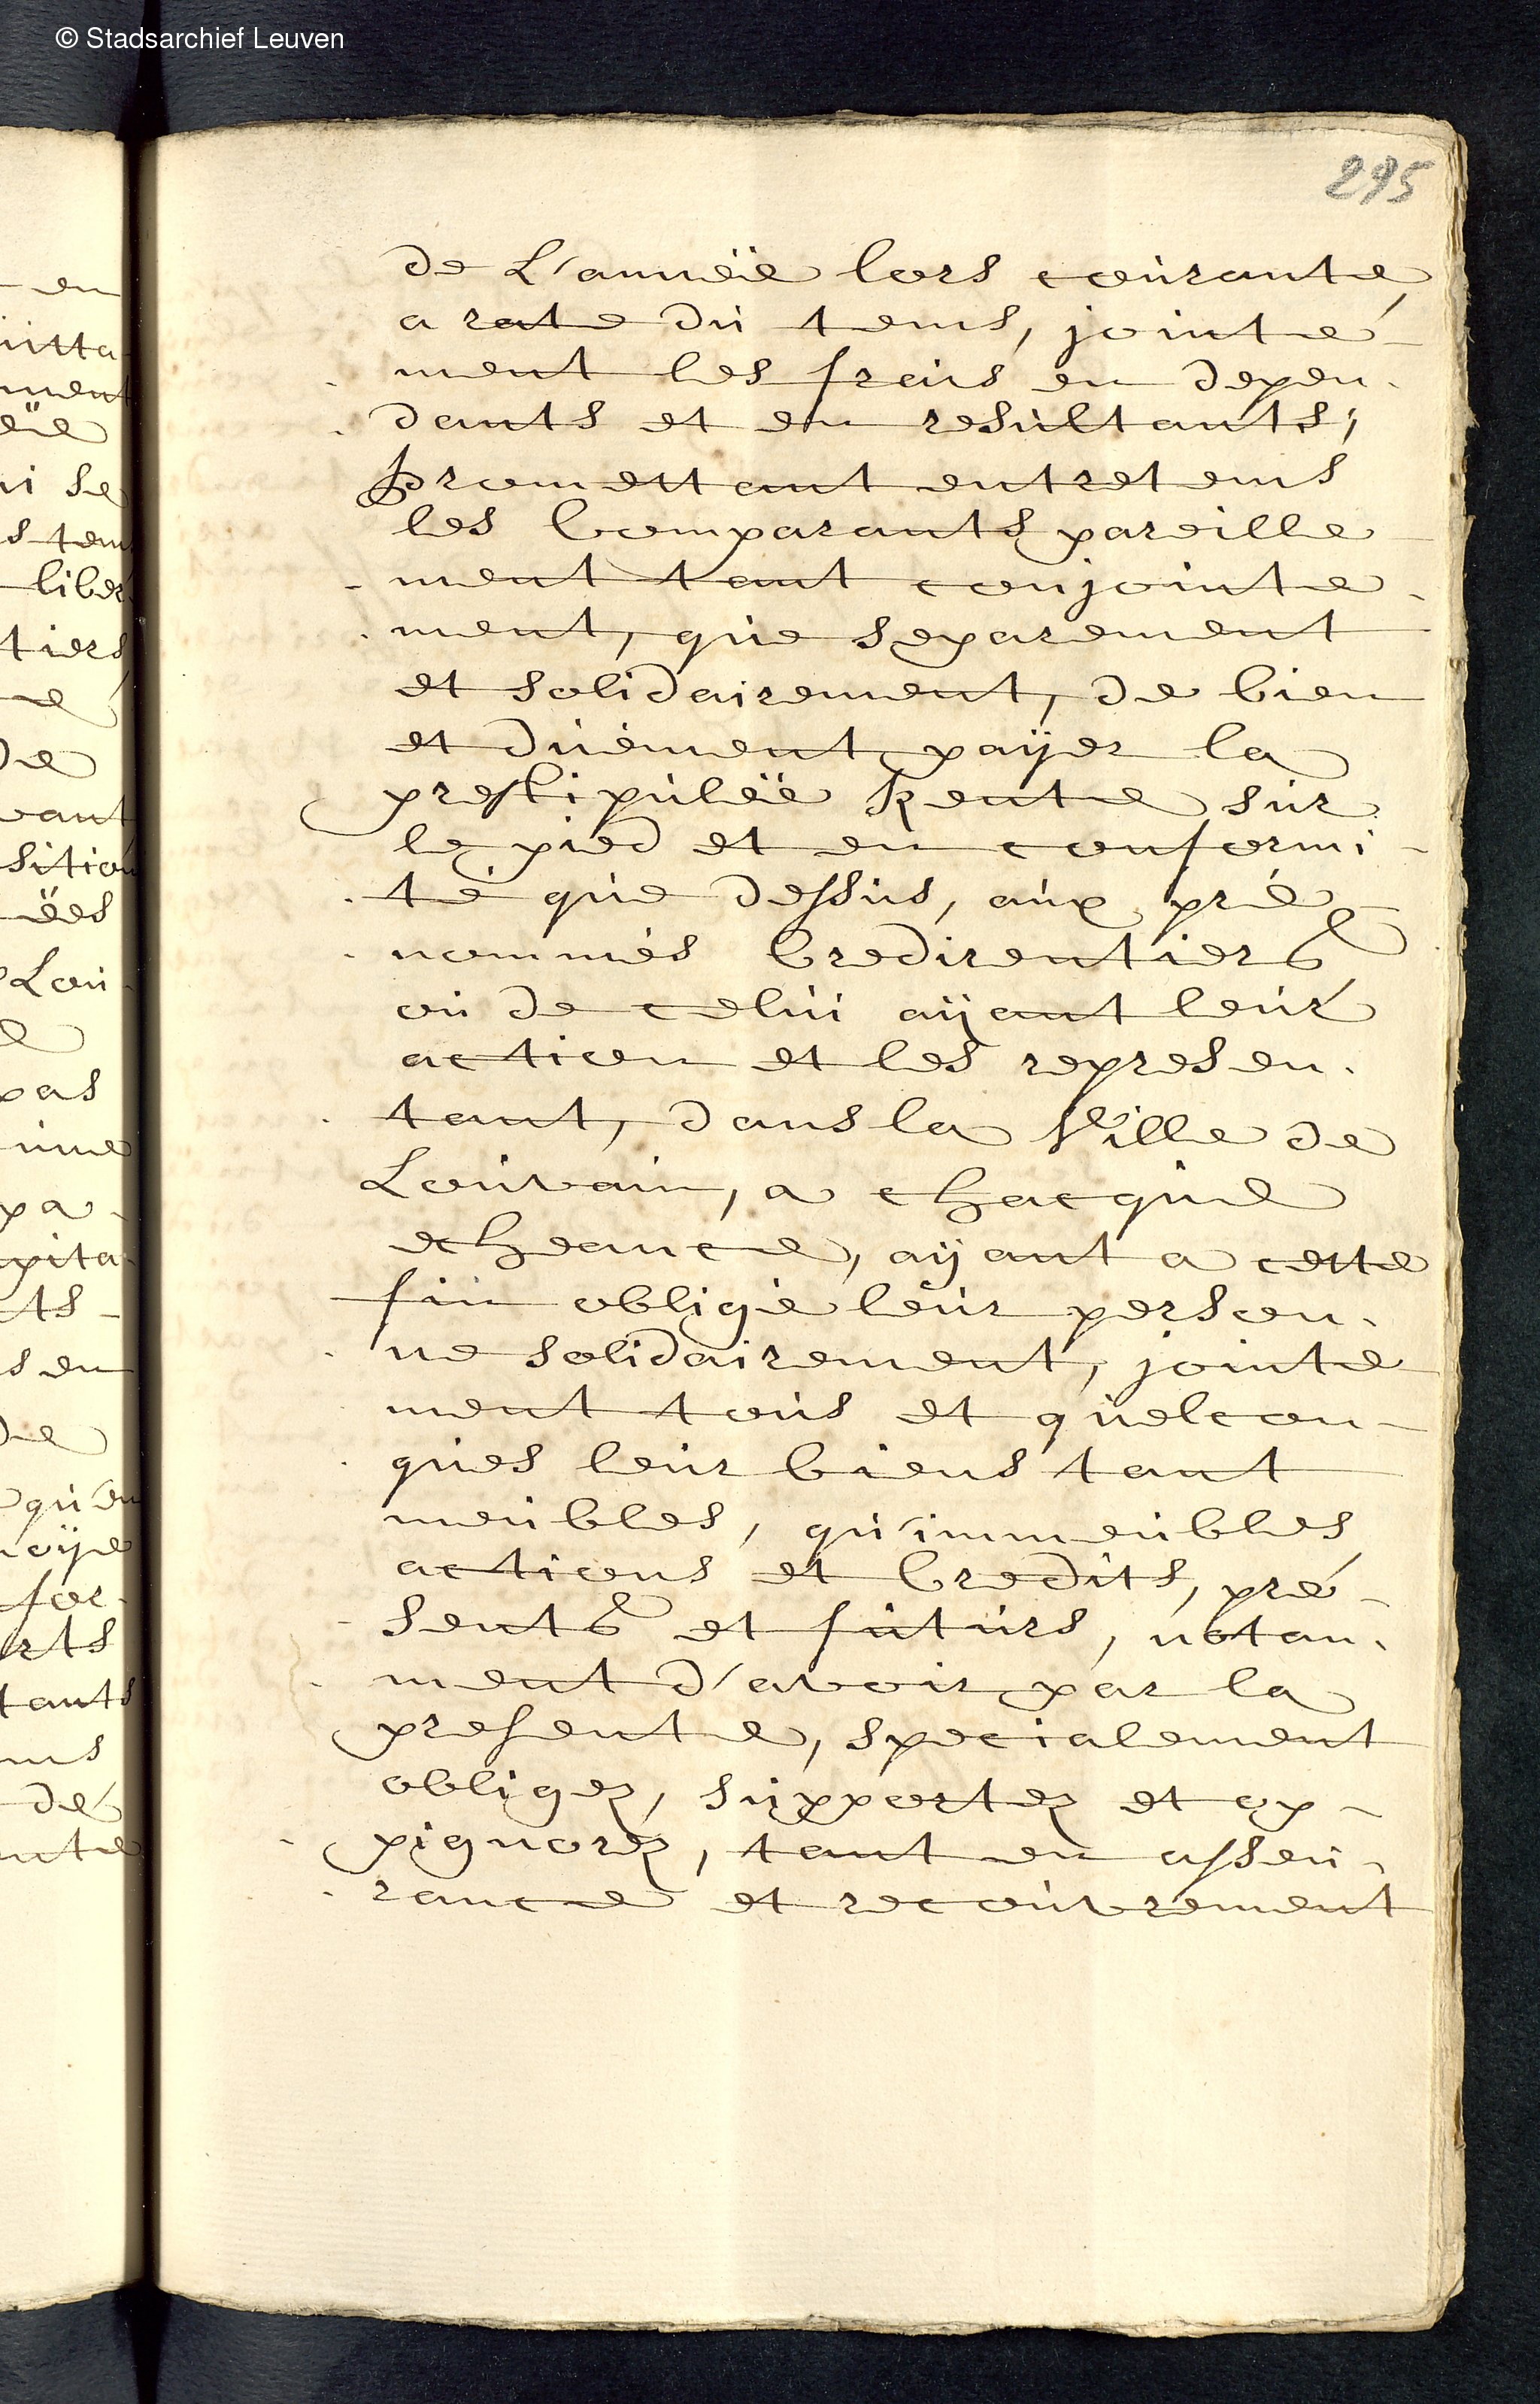 © Stadsarchief Leuven
295
de L'anneïe lors courante
a rate du tems, jointe-
ment les frais en depen-
dants et en resultants;
Promettant entretems
les Comparants pareille-
ment tant conjointe-
ment, que separement
et solidairement, de bien
et duëment payer la
prestipuleïe Rente sur
le pied et en conformi-
té que dessus, aux pré-
nommés Credirentiers
ou de celui aÿant leur
action et les represen-
tant, dans la Ville de
Louvain, a chacque
echeance, aÿant a cette
fin obligé leur person-
ne solidairement, jointe
ment tous et quelcon-
ques leur biens tant
meubles, qu'immeubles
actions et Credits, pré-
sents et futurs, notan-
ment d'avoir par la
presente, specialement
obligez, supportez et op-
pignorez, tant en asseu-
rance et recouvrement
en
uitta-
ment
eïe
ui se
s tems
liber
tiers
de
vant
sition
ëes
Lou-
pas
une
pa-
pita-
ts
s en
de
qu'en
for-
rts
tants
ms
dé
nte